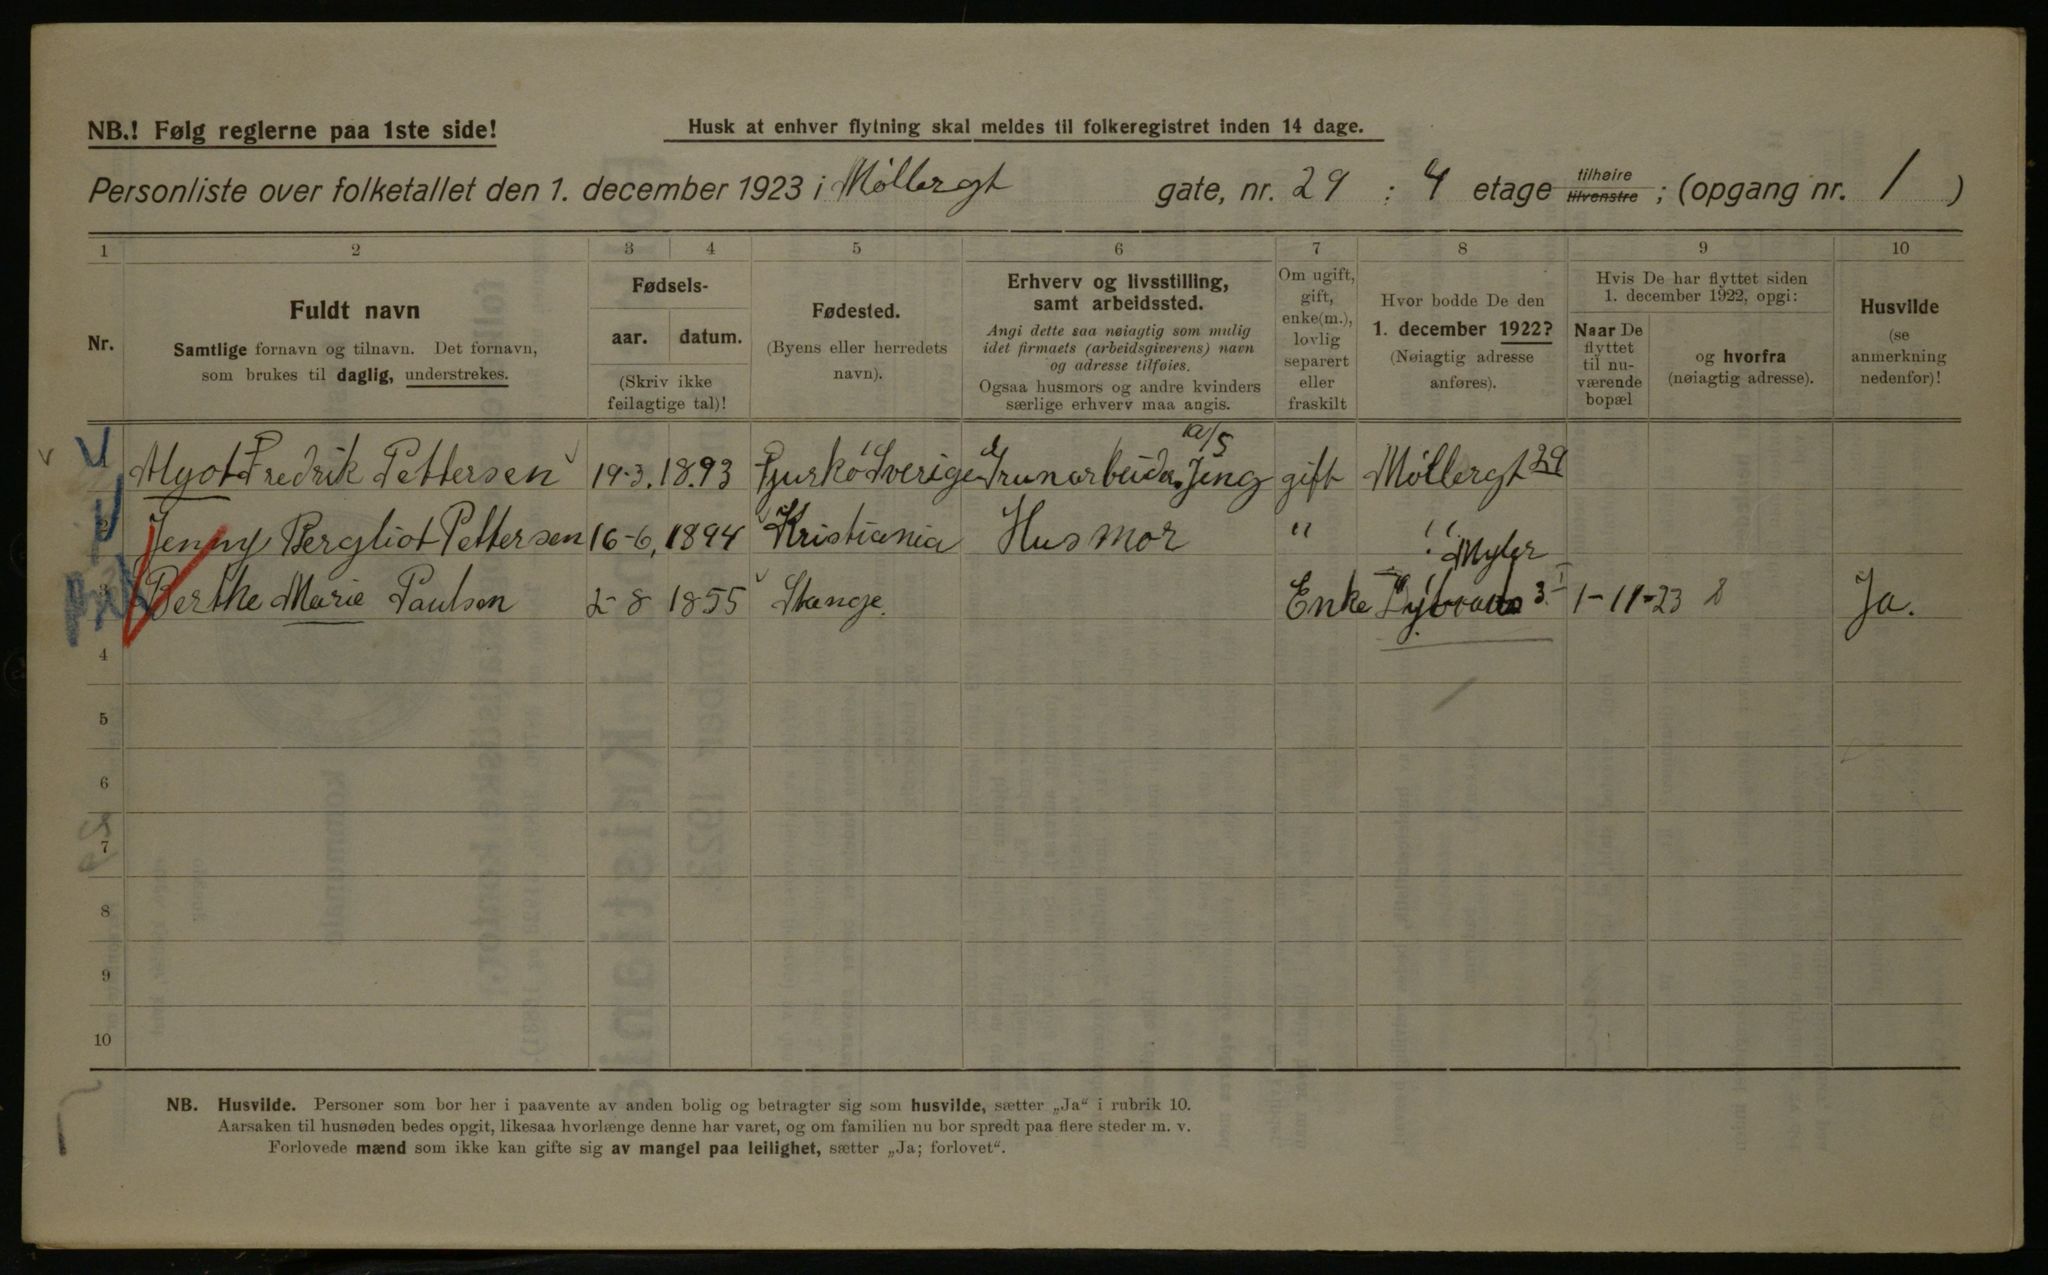 NB.! Følg reglerne paa 1ste side!
Husk at enhver flytning skal meldes til folkeregistret inden 14 dage.
Personliste over folketallet den 1. december 1923 i Møllergt gate, nr. 29 : 4 etage tilhøire tilvenstre ; (opgang nr. 1 )
1 2 3 4 5 6 7 8 9 10
Nr.
Fuldt navn
Samtlige fornavn og tilnavn. Det fornavn,
som brukes til daglig, understrekes.
Fødsels-
aar. datum.
(Skriv ikke
feilagtige tal)!
Fødested.
(Byens eller herredets
navn).
Erhverv og livsstilling,
samt arbeidssted.
Angi dette saa nøiagtig som mulig
idet firmaets (arbeidsgiverens) navn
og adresse tilføies.
Ogsaa husmors og andre kvinders
særlige erhverv maa angis.
Om ugift,
gift,
enke(m.),
lovlig
separert
eller
fraskilt
Hvor bodde De den
1. december 1922?
(Nøiagtig adresse
anføres).
Hvis De har flyttet siden
1. december 1922, opgi:
Naar De
flyttet
til nu-
værende
bopæl
og hvorfra
(nøiagtig adresse).
Husvilde
(se
anmerkning
nedenfor)!
Algot Fredrik Pettersen 19-3. 18.93 Sverige gift Møllergt 29
2 Jenny Bergliot Pettersen 16-6, 1894 Kristiania Husmor " "
3 Berthe Marie Paulsen 2-8 1855 Stange. Enke 3. 1-11-23 Ja.
4
5
6
7
8
9
10
NB. Husvilde. Personer som bor her i paavente av anden bolig og betragter sig som husvilde, sætter „Ja“ i rubrik 10.
Aarsaken til husnøden bedes opgit, likesaa hvorlænge denne har varet, og om familien nu bor spredt paa flere steder m. v.
Forlovede mænd som ikke kan gifte sig av mangel paa leilighet, sætter „Ja; forlovet“.